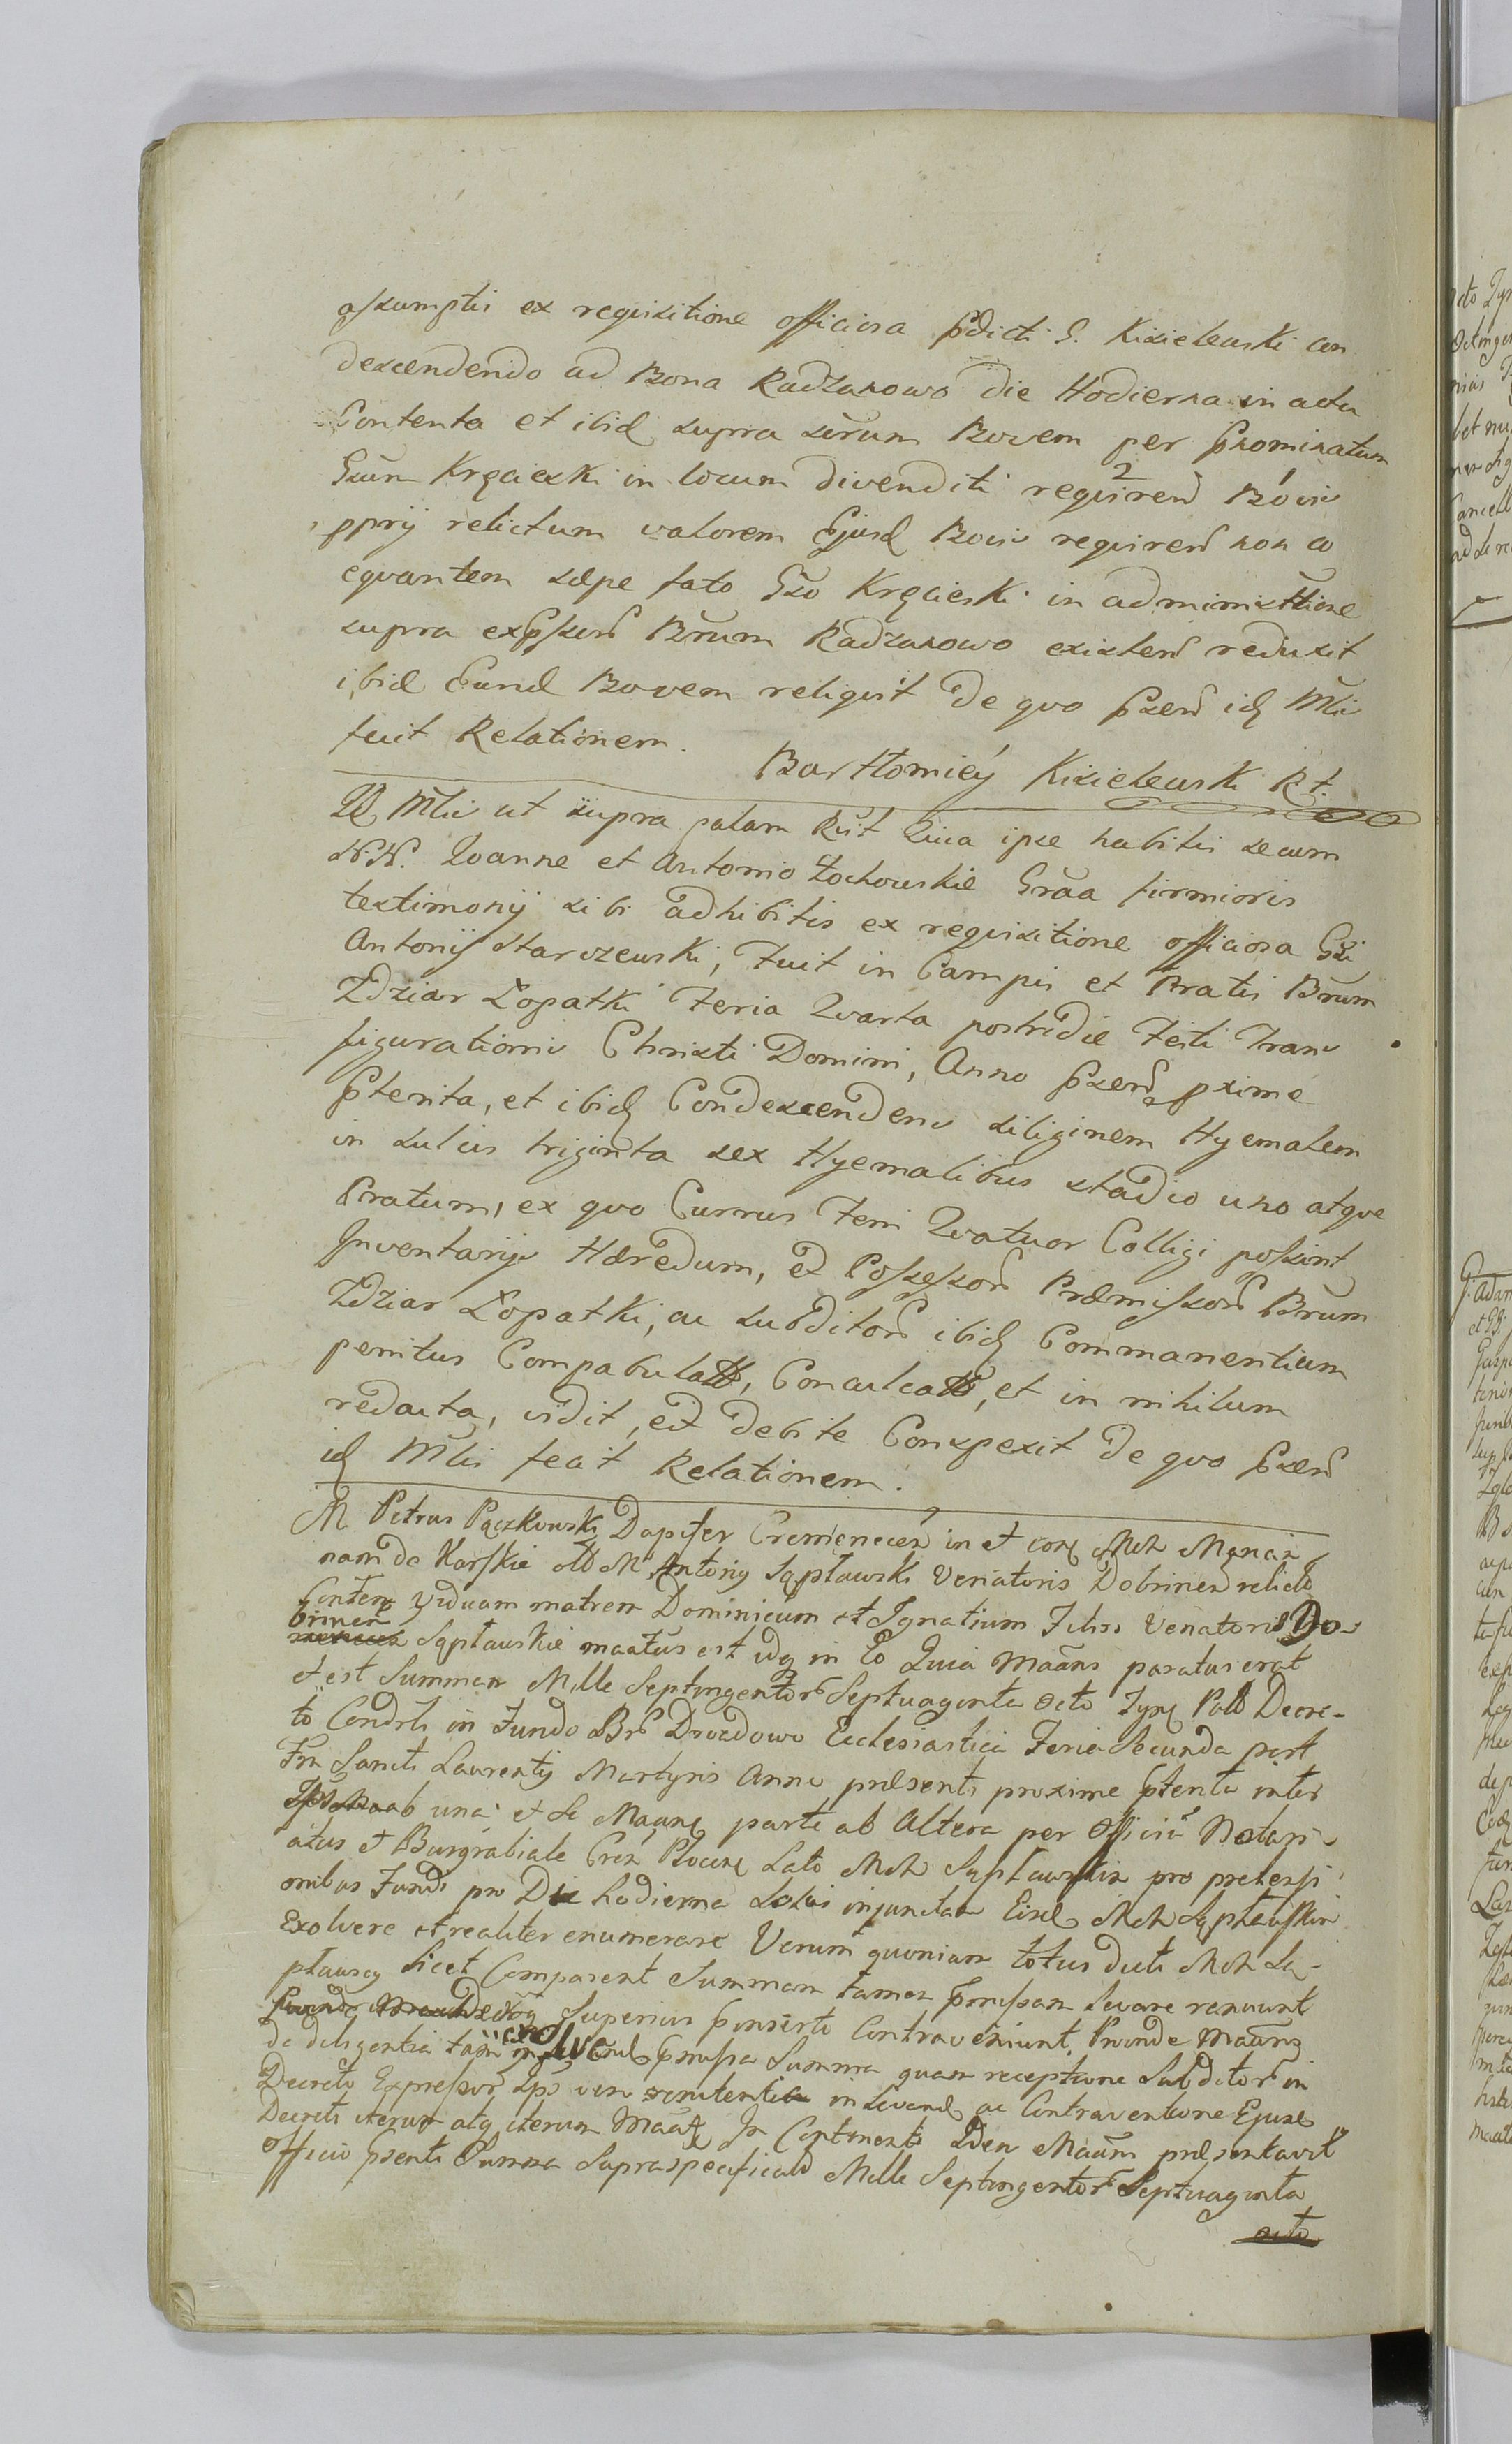 assumptis ex requisitione officiosa pdicti G. Kisielewski con
descendendo ad Bona Radzanowo die Hodierna in actu
Contenta et ibid supra serum Bovem per pnominatum
Gsun Kręcieski in locum divenditi requiren Bovis
pprij relictum valorem Ejusd Bovis requiren non co
equantem sæpe fato Gso Kręcieski in administtione
supra expssern Brum Radzanowo existen reduxit
ibid Eund Bovem reliquit De quo psen idq Mlis
fecit Relationem.
Bartłomiey Kisielewski Rt.
Id Mlis ut supra palam Rūit Quia ipse habitis secum
N.N. Joanne et Antonio Łochowskie Graa firmioris
testimonij sibi adhibitis ex requisitione officiosa Gsi
Antonij Starczewski, Fuit in Campis et Pratis Brum
Zdziar Łopatki Feria Quarta postridie Festi Trans
figurationis Christi Domini, Anno psen pxime
pterita, et ibidq Condescendens siliginem Hyemalem
in sulcis triginta sex Hyemalibus stadio uno atque
Pratum, ex quo Currus Feni Quatuor Colligi possunt
Inventarijs Hæredum, et Possessorn Præmissorn Brum
Zdziar Łopatki, ac subditorn ibidq Commanentium
penitus Compabulatt, Conculcatt, et in nihilum
redacta, vidit, et debite Conspexit De quo psen
idq Mlis fecit Relationem.
M Petrus Pączkowski Dapifer Cremenecen in et con Mch Marian
nam de Karskie olb M Antonij Sąptawski Venatoris Dobrinen relict
Conten viduam matrem Dominicum et Ignatium Filios Venatoris Do-
brinen Sąptawskie maātus est idq in Eo Quia Maāns paratus erat
et est Summam Mille Septingentor Septuaginta octo Tynf Polb Decre-
to Condrti in Fundo Br Drozdowo Ecclesiastici Feria Secunda post
Fm Sancti Laurentij Martyris Anni præsenti proxime pterita inter
Ipsos ab una et se Maane parte ab Altera per Officiū Notari-
atus et Burgrabiale Cren Plocen Lato Mch Sąptawskie pro pretensi
onibus Fundi pro Die hodierna Solvi injunctam Eisd Mch Sąptawskie
Exolvere et realiter enumerare Verum quoniam totus dicti Mch Są-
ptawscy licet Comparent Summam tamen pmissam levare renuunt
Decretoq Superius pinserto Contraveniunt. Proinde Maāns
de diligentia in exolvend pmissa Summa quam receptione Subditor in
Decreto Expressor Ipsos vero renitentia in levand ac Contraventione Ejusd
Decreti iterum atq iterum Maāt In Continenti Idem Maāns præsentavit
Officio psenti Summa Supraspecificata Mille Septingentor Septuaginta
octo